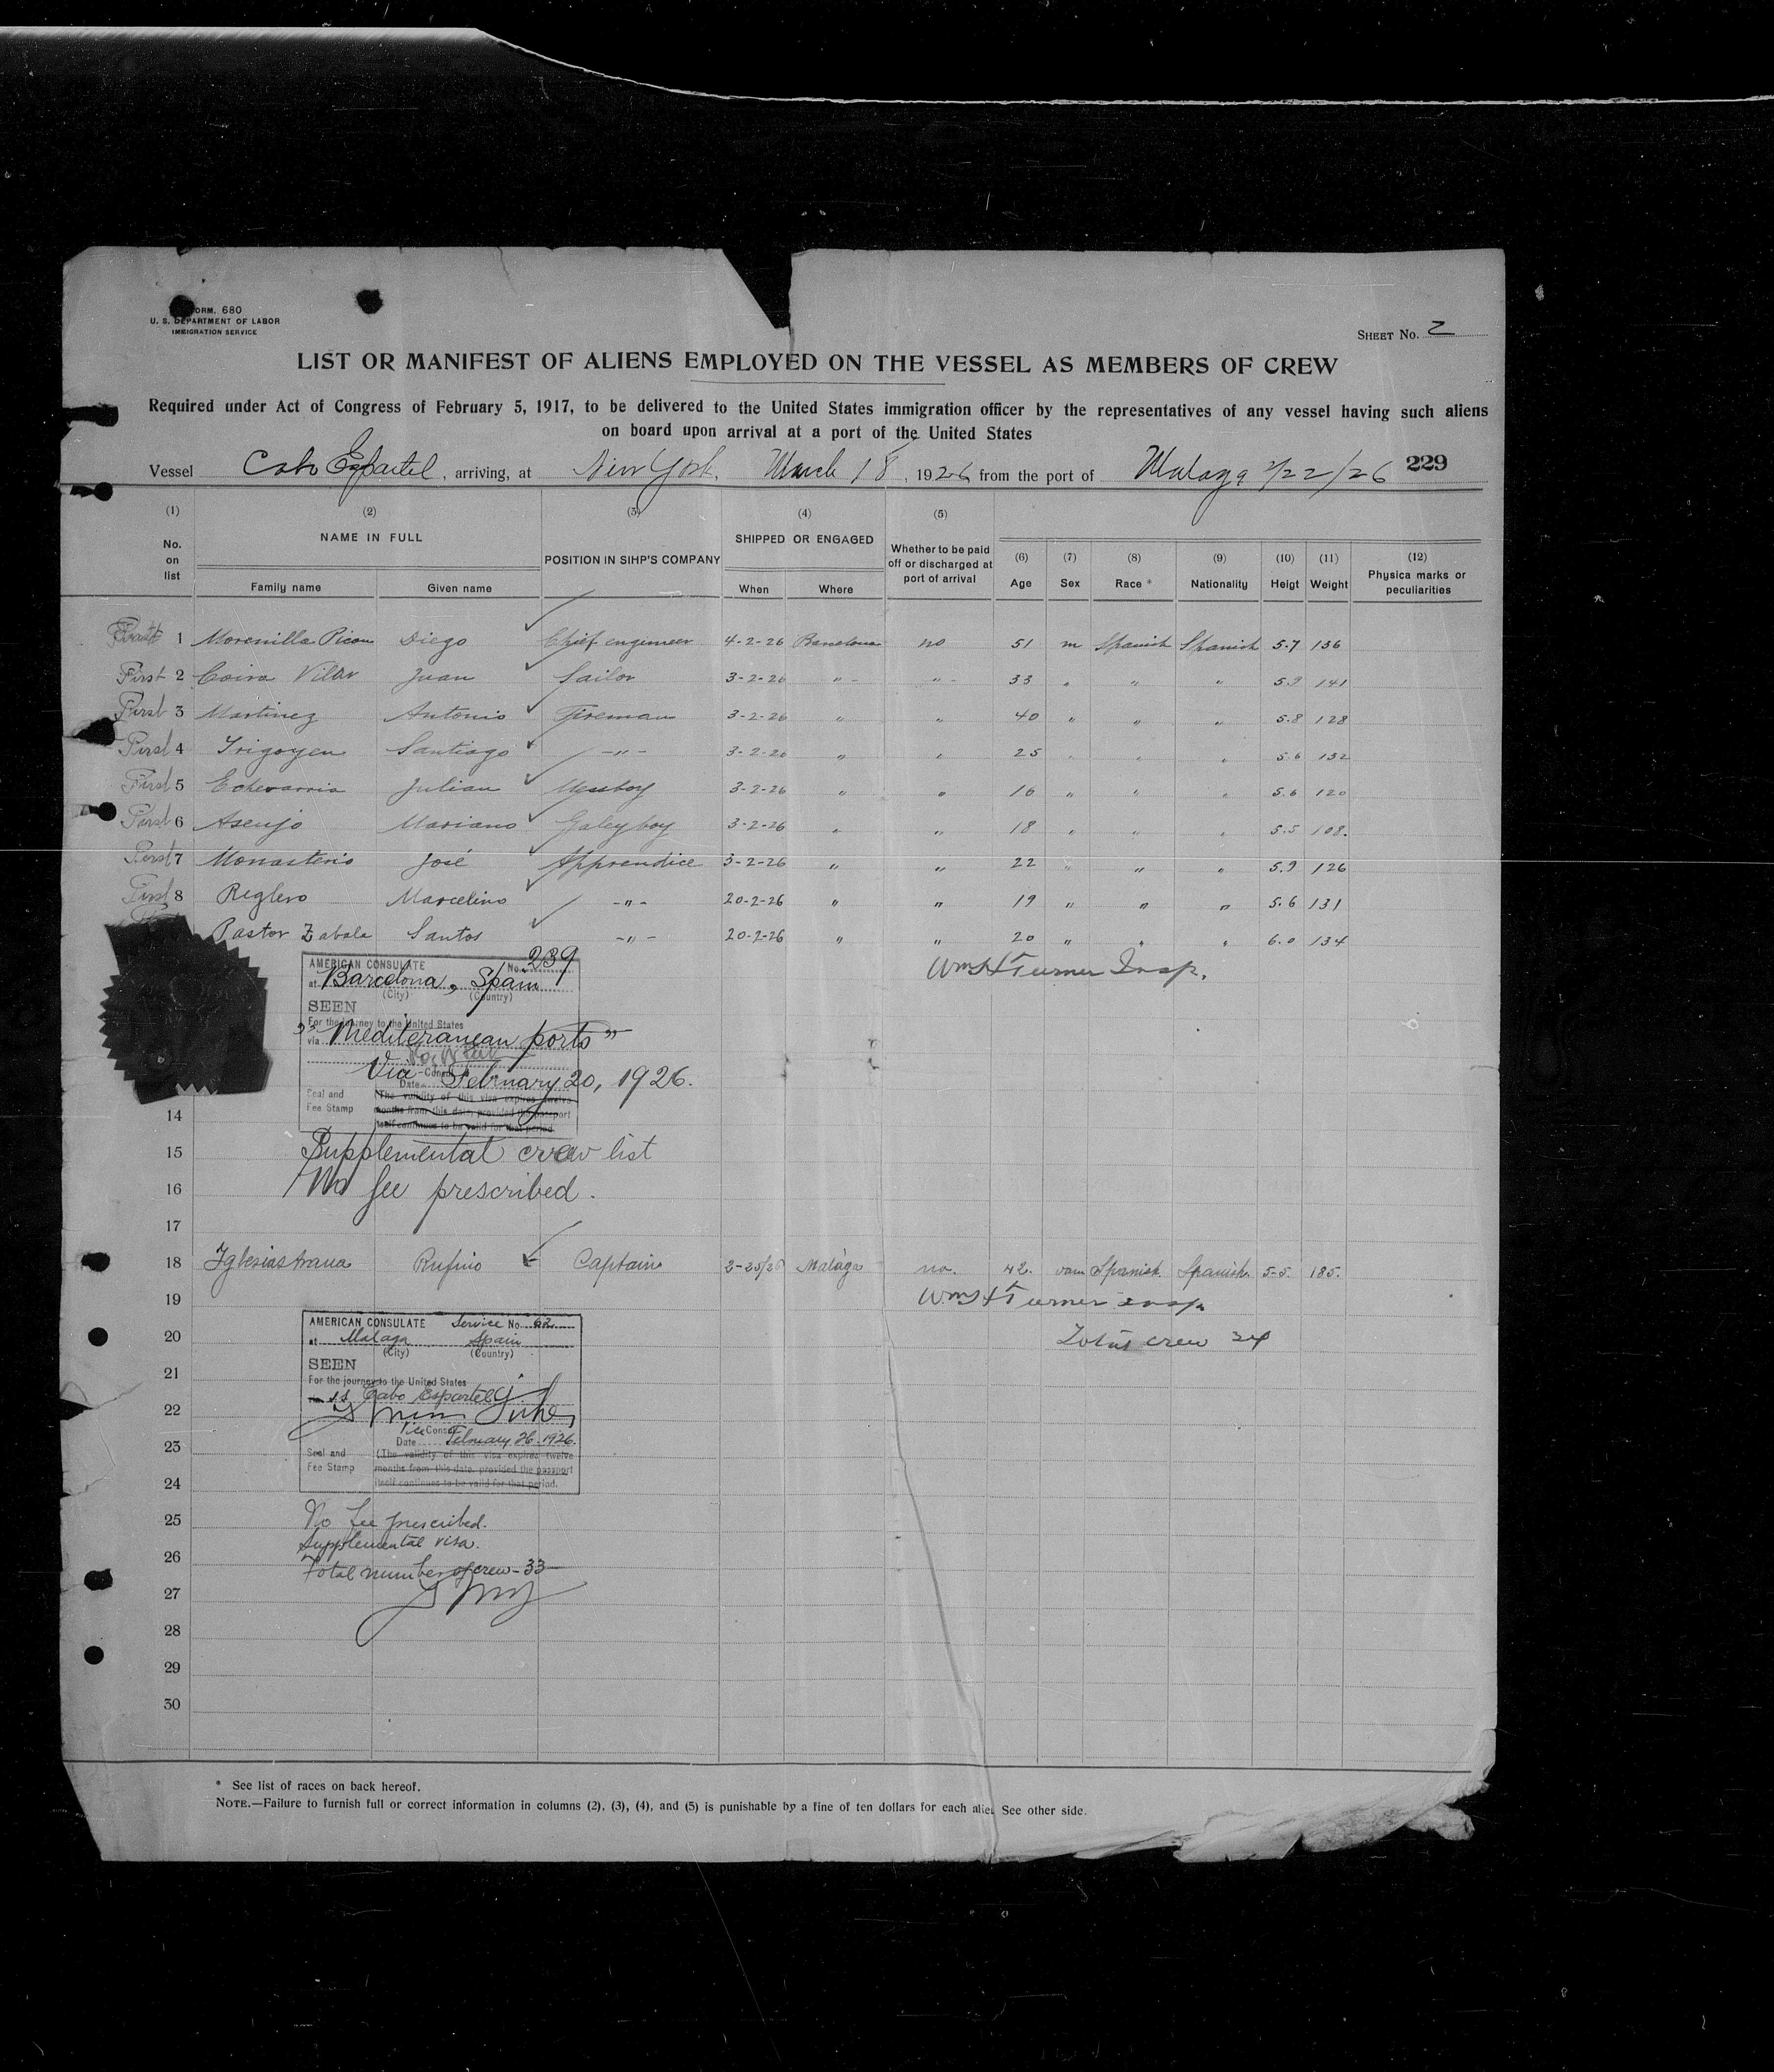 FORM. 680
U. S. DEPARTMENT OF LABOR
IMMIGRATION SERVICE
SHEET No. 2
LIST OR MANIFEST OF ALIENS EMPLOYED ON THE VESSEL AS MEMBERS OF CREW
Required under Act of Congress of February 5, 1917, to be delivered to the United States immigration officer by the representatives of any vessel having such aliens
on board upon arrival at a port of the United States
Vessel Cabo Espartel, arriving, at New York, March 18, 1926 from the port of Malaga 2/22/26 229
(1) (2) (3) (4) (5) (6) (7) (8) (9) (10) (11) (12)
No. on list NAME IN FULL Family name Given name POSITION IN SIHP'S COMPANY SHIPPED OR ENGAGED When Where Whether to be paid off or discharged at port of arrival Age Sex Race * Nationality Heigt Weight Physica marks or peculiarities
1 Morenilla Picon Diego Chief engineer 4-2-26 Barcelona no 51 m Spanish Spanish 5.7 136
First 2 Coira Villar Juan Sailor 3-2-26 " " 33 " " " 5.9 141
First 3 Martinez Antonio Fireman 3-2-26 " " 40 " " " 5.8 128
First 4 Irigoyen Santiago -"- 3-2-26 " " 25 " " " 5.6 132
First 5 Echevarria Julian Messboy 3-2-26 " " 16 " " " 5.6 120
First 6 Asenjo Mariano Galeyboy 3-2-26 " " 18 " " " 5.5 108.
First 7 Monasterio José Apprendice 3-2-26 " " 22 " " " 5.9 126
First 8 Reglero Marcelino -"- 20-2-26 " " 19 " " " 5.6 131
Pastor Zabala Santos -"- 20-2-26 " " 20 " " " 6.0 134
Wm H Turner Insp.
AMERICAN CONSULATE No. 239
at Barcelona, Spain
(City) (Country)
SEEN
For the journey to the United States
via "Mediteranean ports"
Vice Consul
Date February 20, 1926.
Seal and Fee Stamp
(The validity of this visa expires twelve
months from this date, provided the passport
itself continues to be valid for that period.
14
15 Supplemental crew list
16 No fee prescribed.
17
18 Iglesias Arana Rufino Captain 2-25/26 Malaga no. 42. Spanish. Spanish. 5-5. 185.
19 Wm H Turner Insp.
20 Total crew 34
AMERICAN CONSULATE Service No. 62
at Malaga Spain
(City) (Country)
SEEN
21 For the journey to the United States
SS Cabo Espartel
22
Vice Consul
23 Date February 26. 1926.
Seal and Fee Stamp
(The validity of this visa expires twelve
months from this date. provided the passport
24 itself continues to be valid for that period.
25 No fee prescribed.
Supplemental visa.
26 Total number of crew - 33
27
28
29
30
* See list of races on back hereof.
NOTE.—Failure to furnish full or correct information in columns (2), (3), (4), and (5) is punishable by a fine of ten dollars for each alie. See other side.